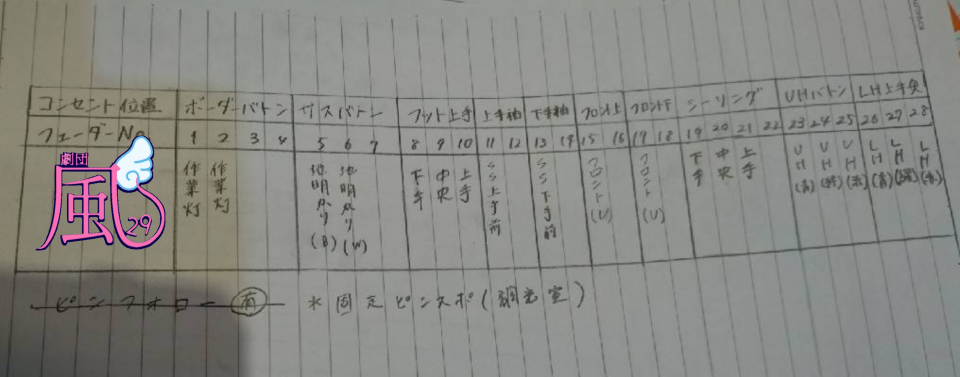 コンセント位置 ボーダーバトン サスバトン フット上手 上手袖 下手袖 フロント上 フロント下 シーリング UHバトン LH上手
フェーダーNo 1 2 3 4 5 6 7 8 9 10 11 12 13 14 15 16 17 18 19 20 21 22 23 24 25 26 27 28
劇団
風
29
作業灯 作業灯 地明かり(B) 地明かり(W) 下手 中央 上手 SS上手前 SS下手前 フロント(U) フロント(U) 下手 中央 上手 UH(青) UH(緑) UH(赤) LH(青) LH(緑) LH(赤)
ピンフォロー 有 ※固定ピンスポ(調光室)